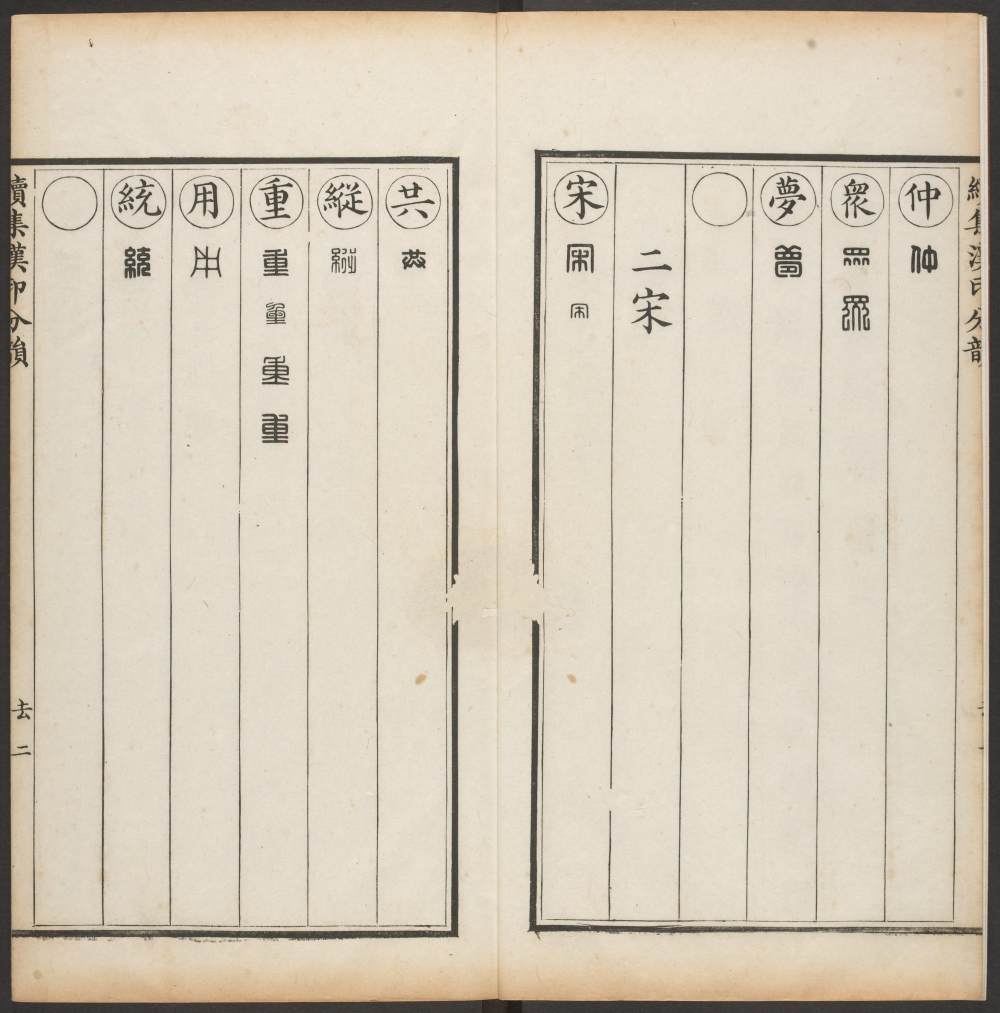 續集漢印分韻
仲 仲
衆 衆 衆
夢 夢
二宋
宋 宋 宋
共 共
縱 縱
重 重 重 重 重
用 用
統 統
續集漢印分韻
去 二